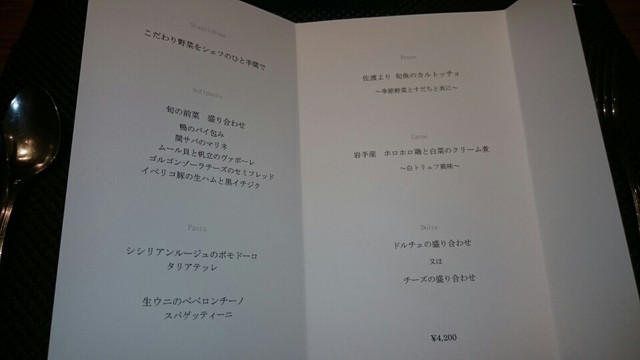 Stuzzichino
こだわり野菜をシェフのひと手間で
Antipasto
旬の前菜 盛り合わせ
鴨のパイ包み
関サバのマリネ
ムール貝と帆立のヴァポーレ
ゴルゴンゾーラチーズのセミフレッド
イベリコ豚の生ハムと黒イチジク
Pasta
シシリアンルージュのポモドーロ
タリアテッレ
生ウニのペペロンチーノ
スパゲッティーニ
Pesce
佐渡より 旬魚のカルトッチョ
～季節野菜とすだちと共に～
Carne
岩手産 ホロホロ鶏と白菜のクリーム煮
～白トリュフ風味～
Dolce
ドルチェの盛り合わせ
又は
チーズの盛り合わせ
¥4,200